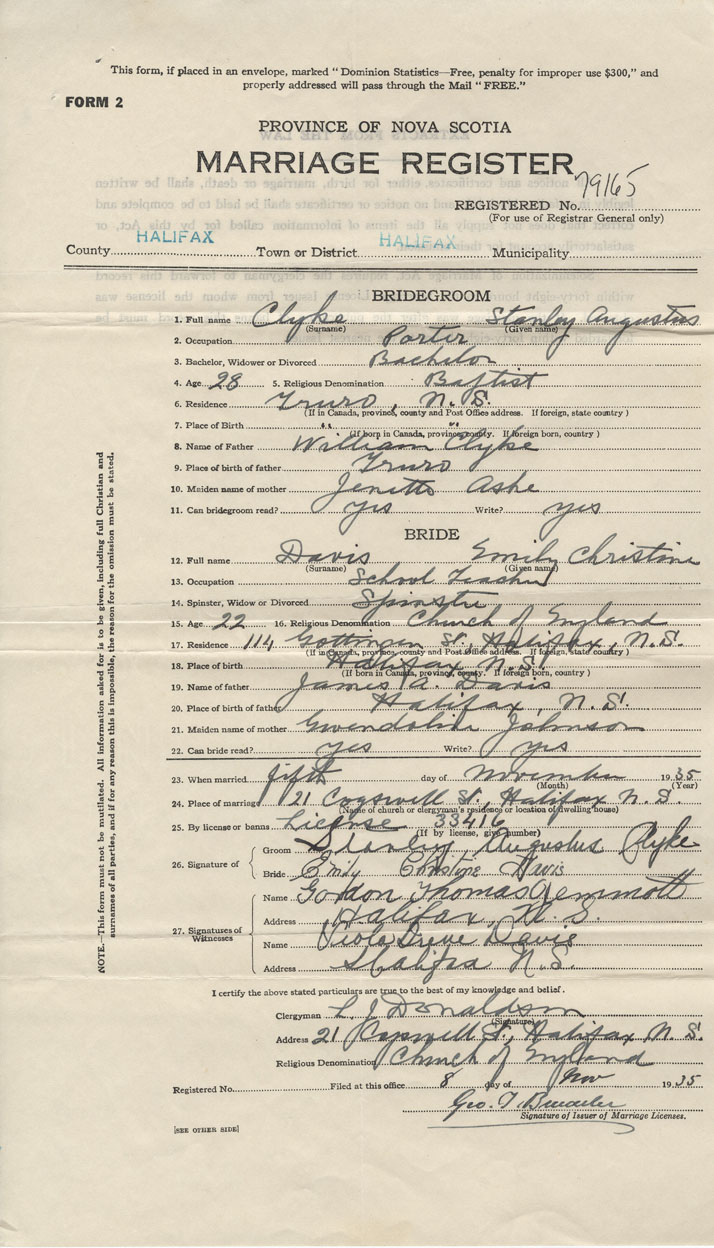 This form, if placed in an envelope, marked "Dominion Statistics—Free, penalty for improper use $300," and
properly addressed will pass through the Mail "FREE."
FORM 2
PROVINCE OF NOVA SCOTIA
MARRIAGE REGISTER
REGISTERED No. 79165
(For use of Registrar General only)
County HALIFAX Town or District HALIFAX Municipality
BRIDEGROOM
1. Full name Clyke Stanley Augustus
(Surname) (Given name)
2. Occupation Porter
3. Bachelor, Widower or Divorced Bachelor
4. Age 28 5. Religious Denomination Baptist
6. Residence Truro, N.S.
(If in Canada, province, county and Post Office address. If foreign, state country)
7. Place of Birth " "
(If born in Canada, province, county. If foreign born, country)
8. Name of Father William Clyke
9. Place of birth of father Truro
10. Maiden name of mother Jenette Ashe
11. Can bridegroom read? yes Write? yes
BRIDE
12. Full name Davis Emily Christine
(Surname) (Given name)
13. Occupation School Teacher
14. Spinster, Widow or Divorced Spinster
15. Age 22 16. Religious Denomination Church of England
17. Residence 114 Gottingen St., Halifax, N.S.
(If in Canada, province, county and Post Office address. If foreign, state country)
18. Place of birth Halifax N.S.
(If born in Canada, province, county. If foreign born, country)
19. Name of father James A. Davis
20. Place of birth of father Halifax, N.S.
21. Maiden name of mother Gwendoline Johnson
22. Can bride read? yes Write? yes
23. When married fifth day of November 1935
(Month) (Year)
24. Place of marriage 121 Cogswell St., Halifax N.S.
(Name of church or clergyman's residence or location of dwelling house)
25. By license or banns License 33416
(If by license, give number)
26. Signature of Groom Stanley Augustus Clyke
Bride Emily Christine Davis
27. Signatures of Witnesses Name Gordon Thomas Jemmott
Address Halifax, N.S.
Name Viola Davis
Address Halifax N.S.
NOTE.—This form must not be mutilated. All information asked for is to be given, including full Christian and
surnames of all parties, and if for any reason this is impossible, the reason for the omission must be stated.
I certify the above stated particulars are true to the best of my knowledge and belief.
Clergyman L J Donaldson
(Signature)
Address 21 Cogswell St., Halifax N.S.
Religious Denomination Church of England
Registered No. Filed at this office 8 day of Nov 1935
Geo. T.
Signature of Issuer of Marriage Licenses.
[SEE OTHER SIDE]